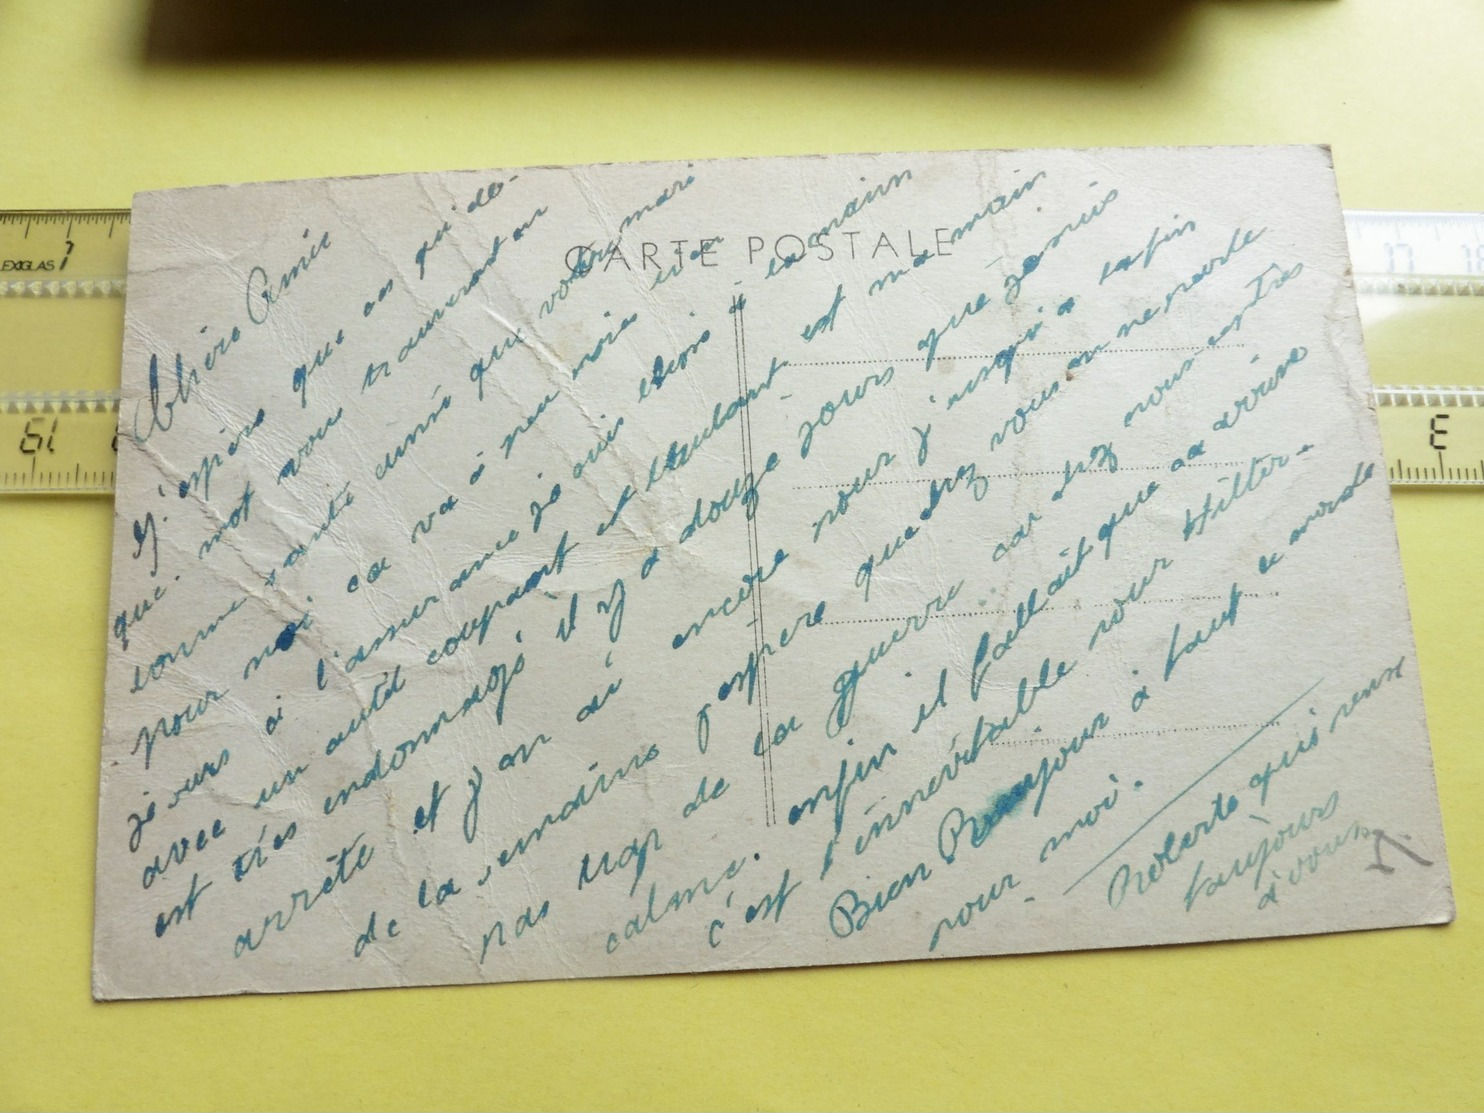 CARTE POSTALE
Chère Amie
J'espère que ces qu'de-
que mot vous trouveront en
bonne santé ainsi que votre mari
pour moi ca va à peu près
je suis à l'assurance je suis étais à la main
avec un outil coupant et est ma main
est très endommajé il y a douze jours que jamais
arrête et j'en ai encore pour j'usqu'à la fin
de la semaine j'espère que chez vous on ne parle
pas trop de la guerre car chez nous cest très
calme. enfin il fallait que ca arrive
c'est l'inévitable pour Hitler-
Bien Bonjour à tout le monde
pour moi.
Roberte qui pense
toujours
à vous.
EXIGLAS 1
19
17
18
3